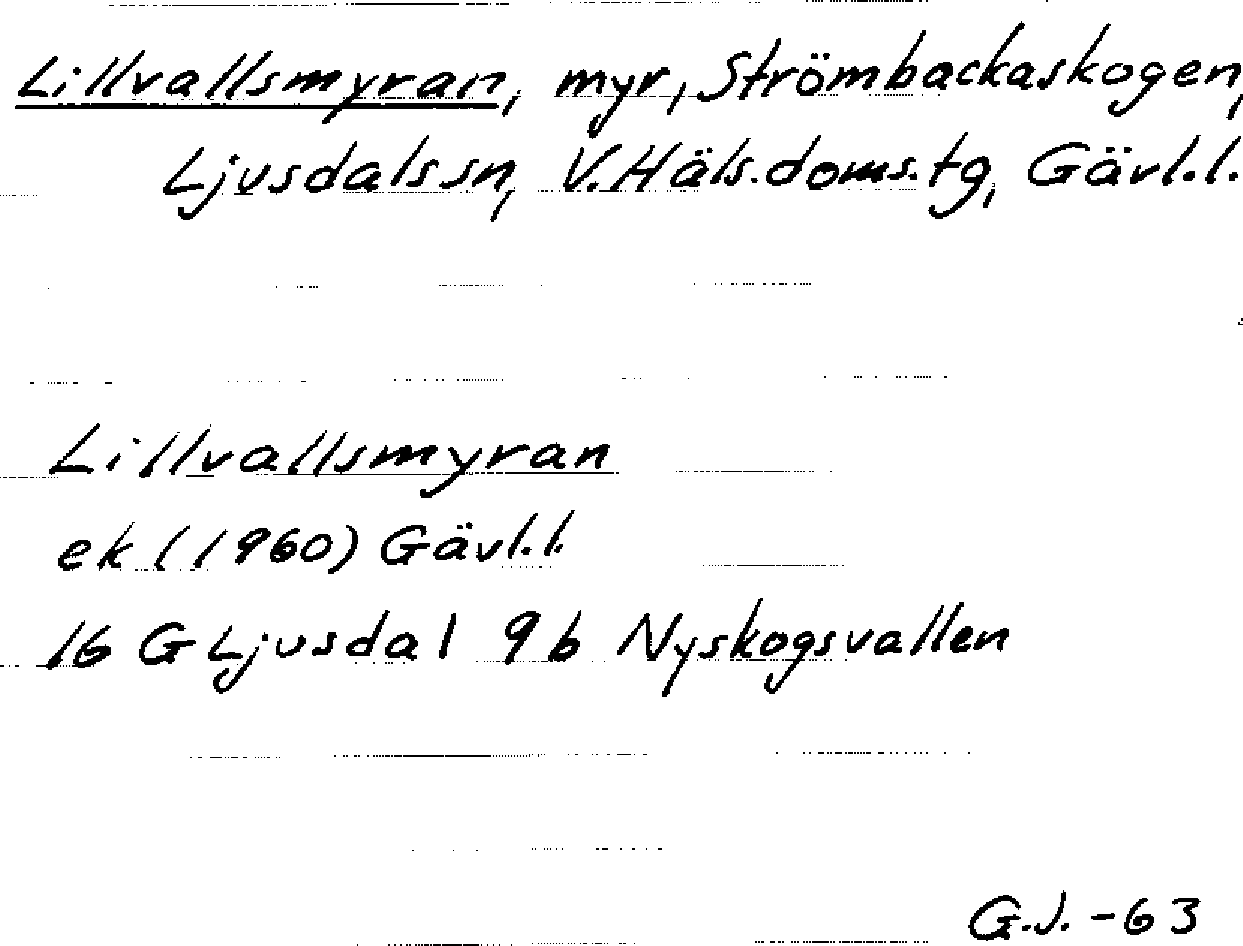 Lillvallsmyran, myr, Strömbackaskogen,
Ljusdals sn, V. Häls. doms. tg, Gävl. l.
Lillvallsmyran
ek (1960) Gävl. l.
16 G Ljusdal 9 b Nyskogsvallen
G.J. -63